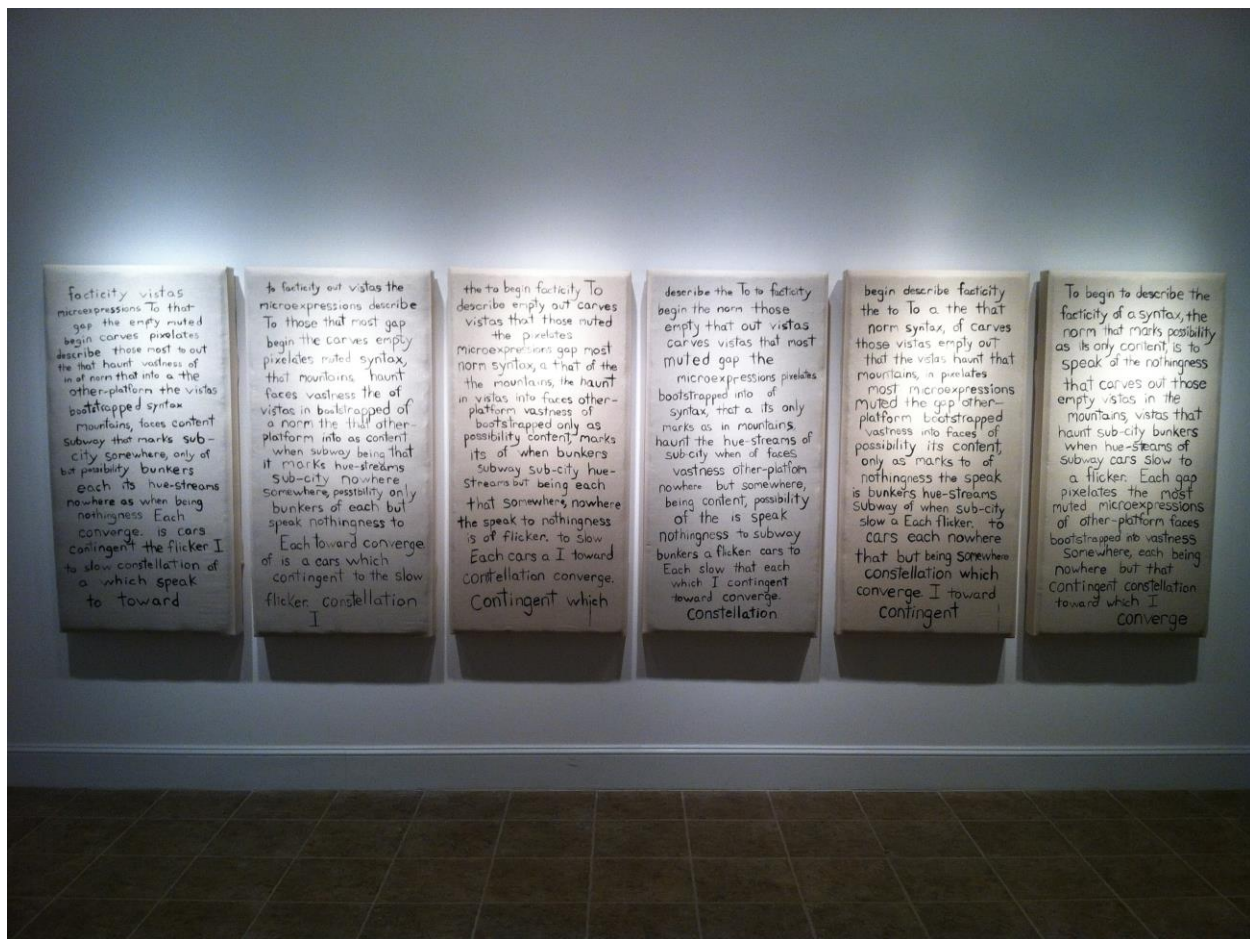 facticity vistas
microexpressions To that
gap the empty muted
begin carves pixelates
describe those most to out
the that haunt vastness of
in of norm that into a the
other-platform the vistas
bootstrapped syntax
mountains, faces content
subway that marks sub-
city somewhere, only of
but possibility bunkers
each its hue-streams
nowhere as when being
nothingness Each
converge. is cars
contingent the flicker I
to slow constellation of
a which speak
to toward
to facticity out vistas the
microexpressions describe
To those that most gap
begin the carves empty
pixelates muted syntax,
that mountains, haunt
faces vastness the of
vistas in bootstrapped of
a norm the that other-
platform into as content
when subway being that
it marks hue-streams
sub-city nowhere
somewhere, possibility only
bunkers of each but
speak nothingness to
Each toward converge
of is a cars which
contingent to the slow
flicker. constellation
I
the to begin facticity To
describe empty out carves
vistas that those muted
the pixelates
microexpressions gap most
norm syntax, a that of the
the mountains, the haunt
in vistas into faces other-
platform vastness of
bootstrapped only as
possibility content, marks
its of when bunkers
subway sub-city hue-
streams but being each
that somewhere, nowhere
the speak to nothingness
is of flicker. to slow
Each cars a I toward
constellation converge.
Contingent which
describe the To to facticity
begin the norm those
empty that out vistas
carves vistas that most
muted gap the
microexpressions pixelates
bootstrapped into of
syntax, that a its only
marks as in mountains,
haunt the hue-streams of
sub-city when of faces
vastness other-platform
nowhere but somewhere,
being content, possibility
of the is speak
nothingness to subway
bunkers a flicker cars to
Each slow that each
which I contingent
toward converge.
Constellation
begin describe facticity
the to To a the that
norm syntax, of carves
those vistas empty out
that the vistas haunt that
mountains, in pixelates
most microexpressions
muted the gap other-
platform bootstrapped
vastness into faces of
possibility its content,
only as marks to of
nothingness the speak
is bunkers hue-streams
subway of when sub-city
slow a Each flicker. to
cars each nowhere
that but being somewhere
constellation which
converge. I toward
contingent
To begin to describe the
facticity of a syntax, the
norm that marks possibility
as its only content, is to
speak of the nothingness
that carves out those
empty vistas in the
mountains, vistas that
haunt sub-city bunkers
when hue-streams of
subway cars slow to
a flicker. Each gap
pixelates the most
muted microexpressions
of other-platform faces
bootstrapped into vastness
somewhere, each being
nowhere but that
contingent constellation
toward which I
converge